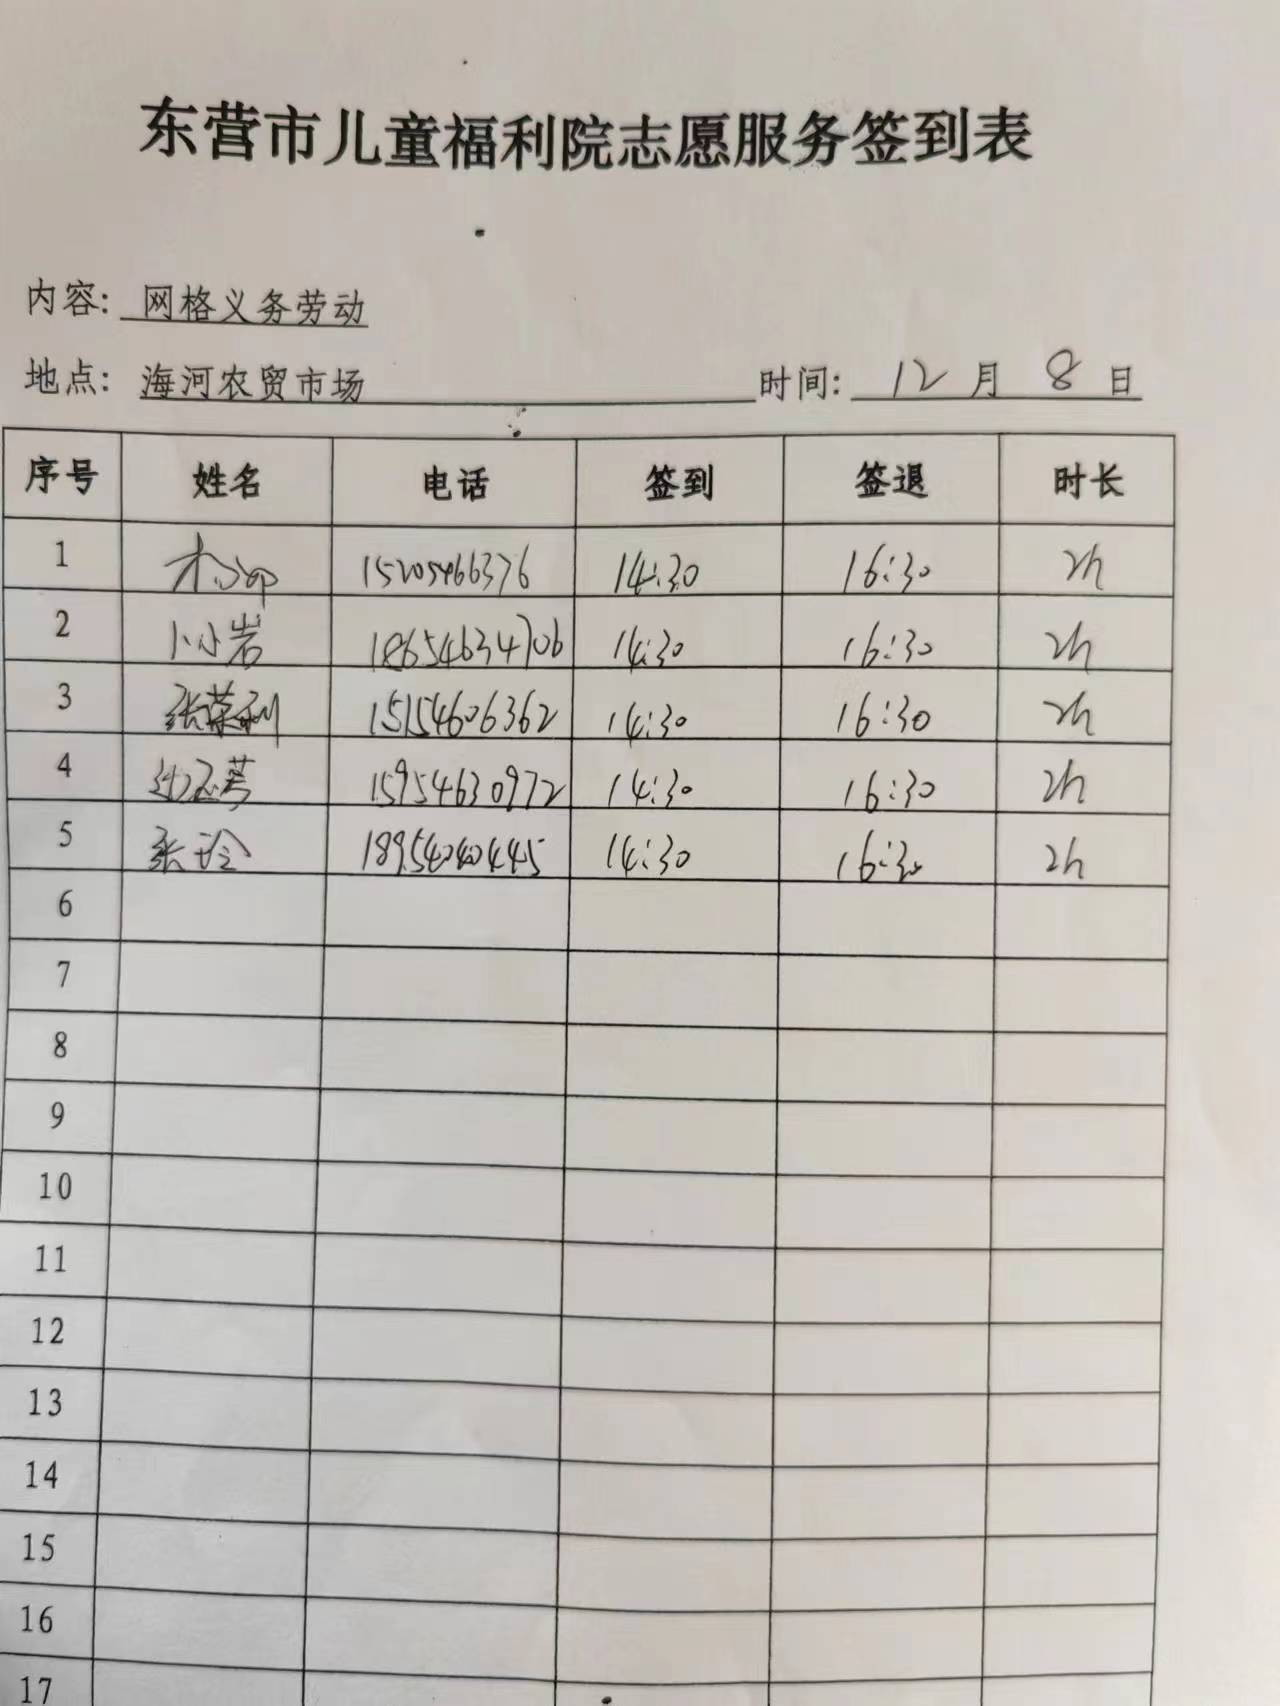 东营市儿童福利院志愿服务签到表
内容: 网格义务劳动
地点: 海河农贸市场 时间: 12 月 8 日
序号 姓名 电话 签到 签退 时长
1 15205466376 14:30 16:30 2h
2 卜小岩 18654634706 14:30 16:30 2h
3 张荣利 15154606362 14:30 16:30 2h
4 15954630972 14:30 16:30 2h
5 张玲 18954040445 14:30 16:30 2h
6
7
8
9
10
11
12
13
14
15
16
17